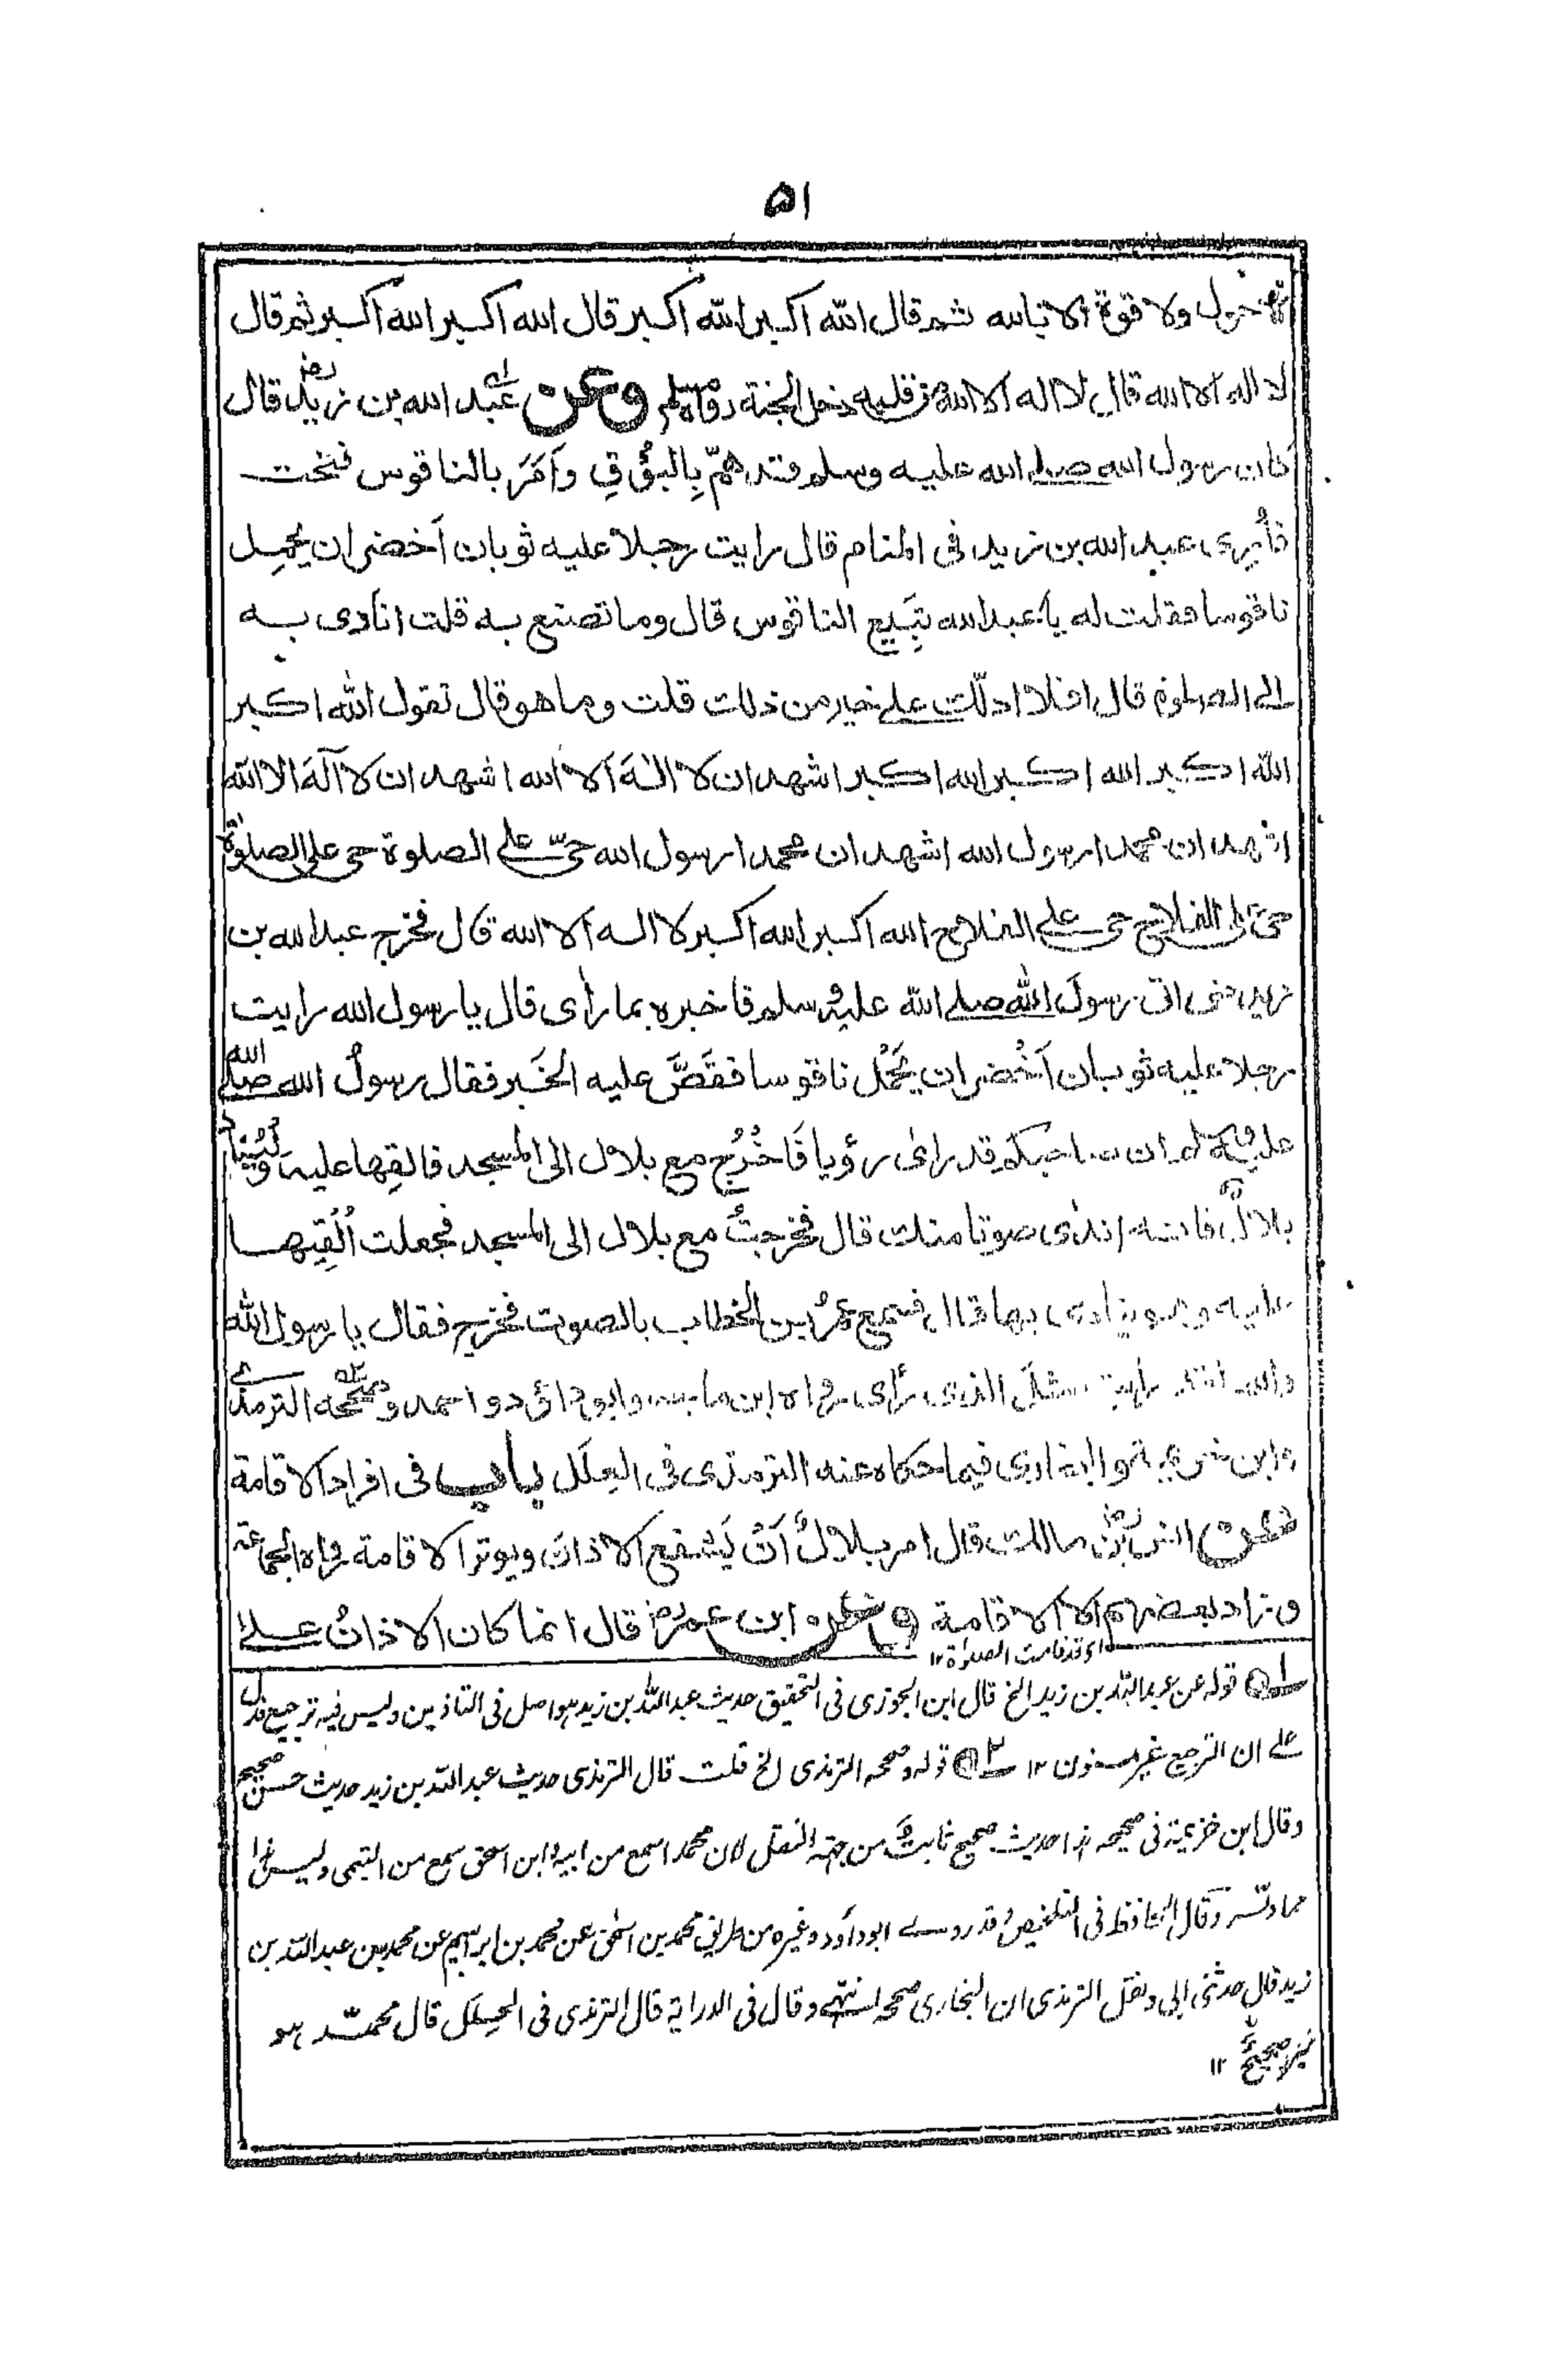 ۵۱
لا حول ولا قوة الا بالله ثم قال الله اكبر الله اكبر قال الله اكبر الله اكبر ثم قال
لا اله الا الله قال لا اله الا الله من قلبه دخل الجنة رواه مسلم وعن عبد الله بن زيد رض قال
كان رسول الله صلى الله عليه وسلم قد همّ بِالبُوقِ وَاَمَرَ بالناقوس فنحت
فاُرِى عبد الله بن زيد فى المنام قال رايت رجلا عليه ثوبان اَخضران يحمِل
ناقوسا فقلت له يا عبد الله تَبِيع الناقوس قال وما تصنع به قلت انَادى به
الى الصلوة قال افلا ادلّك على خير من ذلك قلت وما هو قال تقول الله اكبر
الله اكبر الله اكبر الله اكبر اشهد ان لا الٰهَ الا الله اشهد ان لا آلهَ الا الله
اشهد ان محمدا رسول الله اشهد ان محمدا رسول الله حىّ على الصلوة حى على الصلوة
حىّ على الفلاح حى على الفلاح الله اكبر الله اكبر لا اله الا الله قال فخرج عبد الله بن
زيد حتى اتى رسولَ الله صلى الله عليه وسلم فاخبره بما رأى قال يا رسول الله رايت
رجلا عليه ثوبان اَخْضران يَحْمل ناقوسا فقَصَّ عليه الخَبر فقال رسولُ الله صلى الله
عليه وسلم ان صاحبكم قد رأى رؤيا فَاخْرُج مع بلال الى المسجد فالقِها عليه وليُنَاد
بلالٌ فانه اندٰى صوتا منك قال فخرجتُ مع بلال الى المسجد فجعلت اُلْقِيها
عليه وهو ينادى بها قال فسمع عمرُ بن الخطاب بالصوت فخرج فقال يا رسول الله
والله لقد رايت مثلَ الذى رأى رواه ابن ماجه وابو داؤد واحمد وصححه الترمذى
وابن خزيمة والبخارى فيما حكاه عنه الترمذى فى العِلَل باب فى افراد الاقامة
عن انس بن مالك قال امر بلالٌ اَنْ يَشفع الاذانَ ويوتر الاقامة رواه الجماعة
وزاد بعضهم الا الاقامة وعن ابن عمر رض قال انما كان الاذانُ على
اى قد قامت الصلوٰة ١٢
١ قوله عن عبد الله بن زيد الخ قال ابن الجوزى فى التحقيق حديث عبد الله بن زيد هو اصل فى التاذين وليس فيه ترجيع فدل
على ان الترجيع غير مسنون ١٢ ٢ قوله وصححه الترمذى الخ قلت قال الترمذى حديث عبد الله بن زيد حديث حسن صحيح
وقال ابن خزيمة فى صحيحه هذا حديث صحيح ثابت من جهة النقل لان محمدا سمع من ابيه وابن اسحق سمع من التيمى وليس هذا
مما دلّسه وقال الحافظ فى التلخيص قد روى ابو داؤد وغيره من طريق محمد بن اسحٰق عن محمد بن ابراهيم عن محمد بن عبد الله بن
زيد قال حدثنى ابى ونقل الترمذى ان البخارى صححه انتهى وقال فى الدراية قال الترمذى فى العلل قال محمّد هو
خبر صحيح ١٢